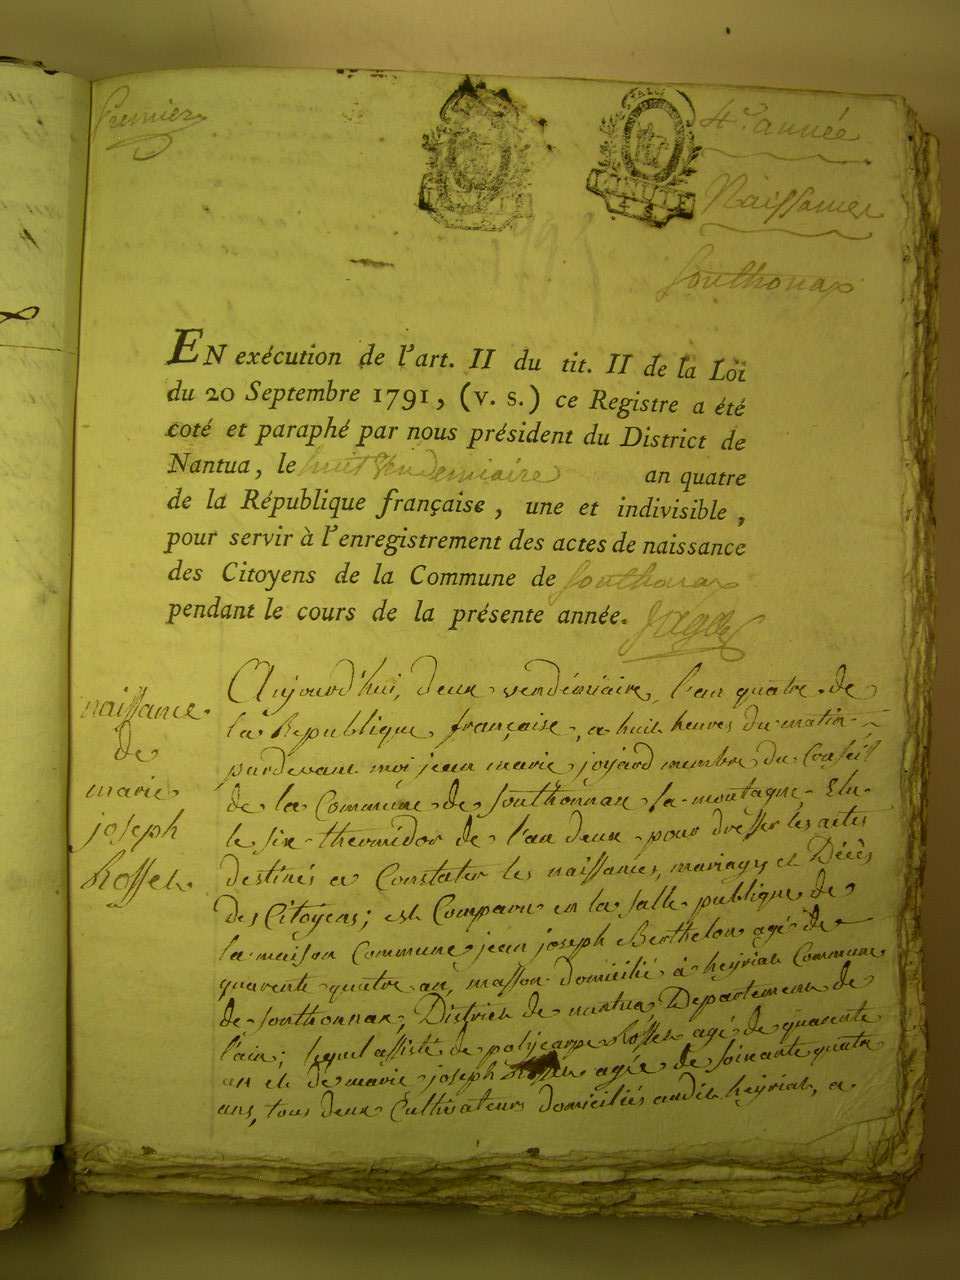 Premier
4e. année
Naissances
Southonax
EN exécution de l'art. II du tit. II de la Loi
du 20 Septembre 1791, (v. s.) ce Registre a été
coté et paraphé par nous président du District de
Nantua, le huit Vendemiaire an quatre
de la République française, une et indivisible,
pour servir à l'enregistrement des actes de naissance
des Citoyens de la Commune de Southonax
pendant le cours de la présente année.
naissance
de
marie
joseph
Rosset
Aujourd'hui, deux vendémiaire, l'an quatre de
la Republique française, a huit heures du matin
pardevant moi jean marie joyard membre du Conseil
de la Commune de Southonnax la montagne Elu
le six thermidor de l'an deux pour dresser les actes
destinés a Constater les naissances, mariages et Décès
des Citoyens; est Comparu en la salle publique de
la maison Commune jean joseph Berthelon agé de
quarente quatre an, masson domicilié à heyriat Commune
de Southonnax, District de nantua Departement de
l'ain; lequel assisté de polycarpe Rosset agé de quarente
an et de marie joseph Rosset agée de soixante quatre
ans, tous deux Cultivateurs domiciliés audit heyriat, a